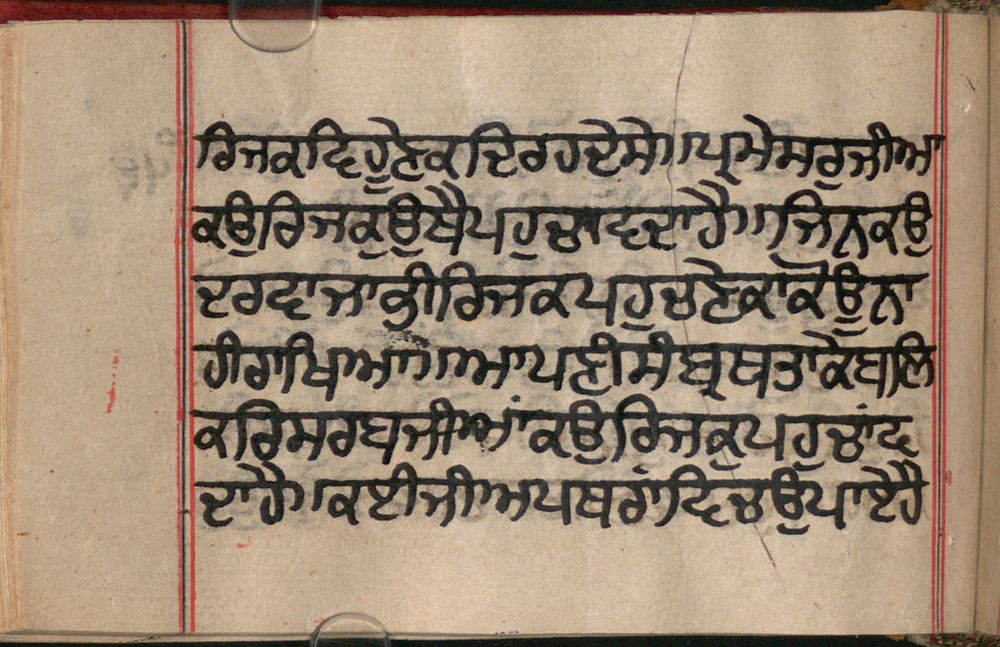 ਰਿਜਕਵਿਹੂਣੇਕਦਿਰਹਦੇਸੇ॥ਪ੍ਰਮੇਸਰੁਜੀਆ
ਕਉਰਿਜਕੁਉਥੈਪਹੁਚਾਵਦਾਹੈ॥ਜਿਨਕਉ
ਦਰਵਾਜਾਭੀਰਿਜਕਪਹੁਚਣੇਕਾਕੋਊਨਾ
ਹੀਰਾਖਿਆ॥ਆਪਣੀਸੰਬ੍ਰਥਤਾਕੇਬਲਿ
ਕਰਿਸਰਬਜੀਆਂਕਉਰਿਜਕੁਪਹੁਚਾਂਵ
ਦਾਹੈ॥ਕਈਜੀਅਪਥਰਾਂਵਿਚਉਪਾਏਹੈ